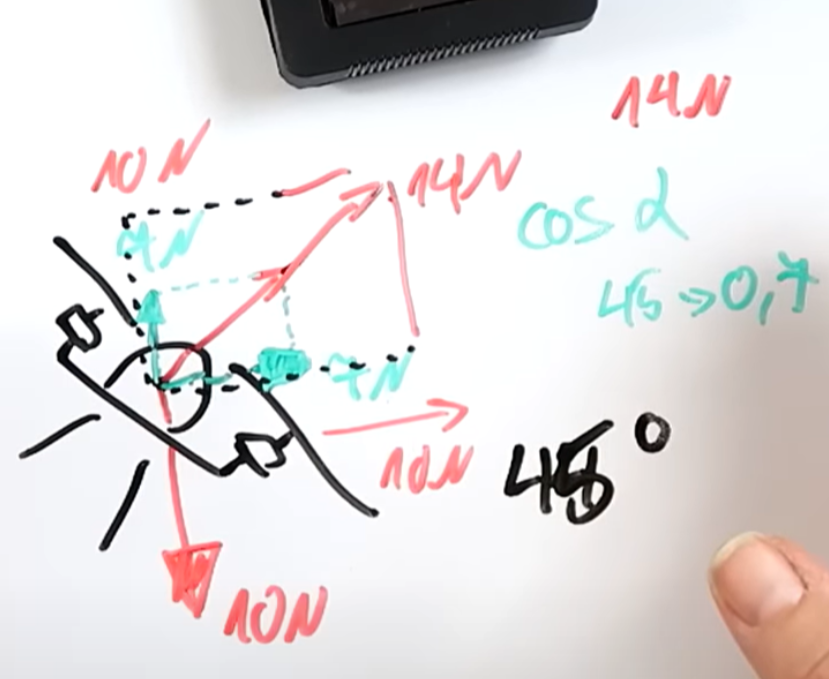 14N
10N
14N
7N
cos α
45 → 0,7
7N
10N
45°
10N